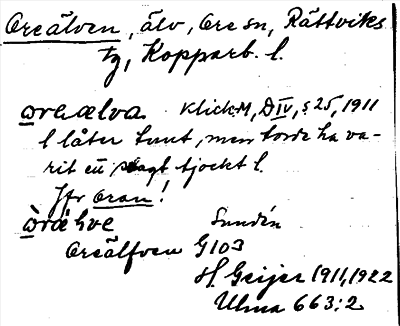 Oreälven, älv, Ore sn, Rättviks
tg, Kopparb. l.
òreælva KlickM, DIV, s 25, 1911
l låter tunt, men torde ha va-
rit en svagt tjockt l.
Jfr Oran!
òräẹlve Sundén
Oreälfven G103
H Geijer 1911, 1922
Ulma 663:2